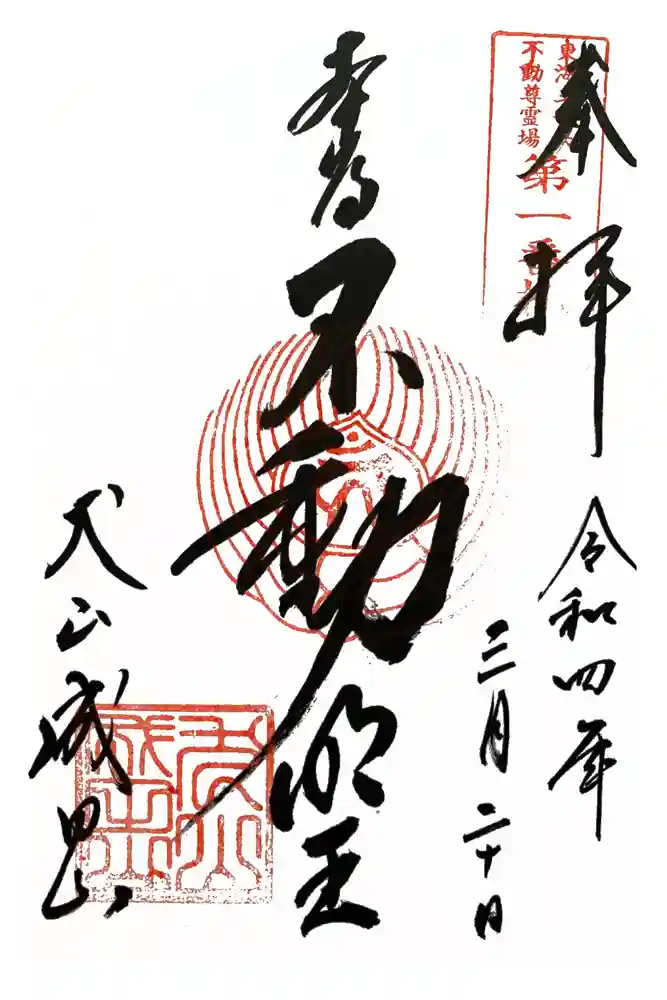 奉拝
東海
不動尊霊場
第一番
令和四年
三月二十日
本尊
不動明王
犬山成田山